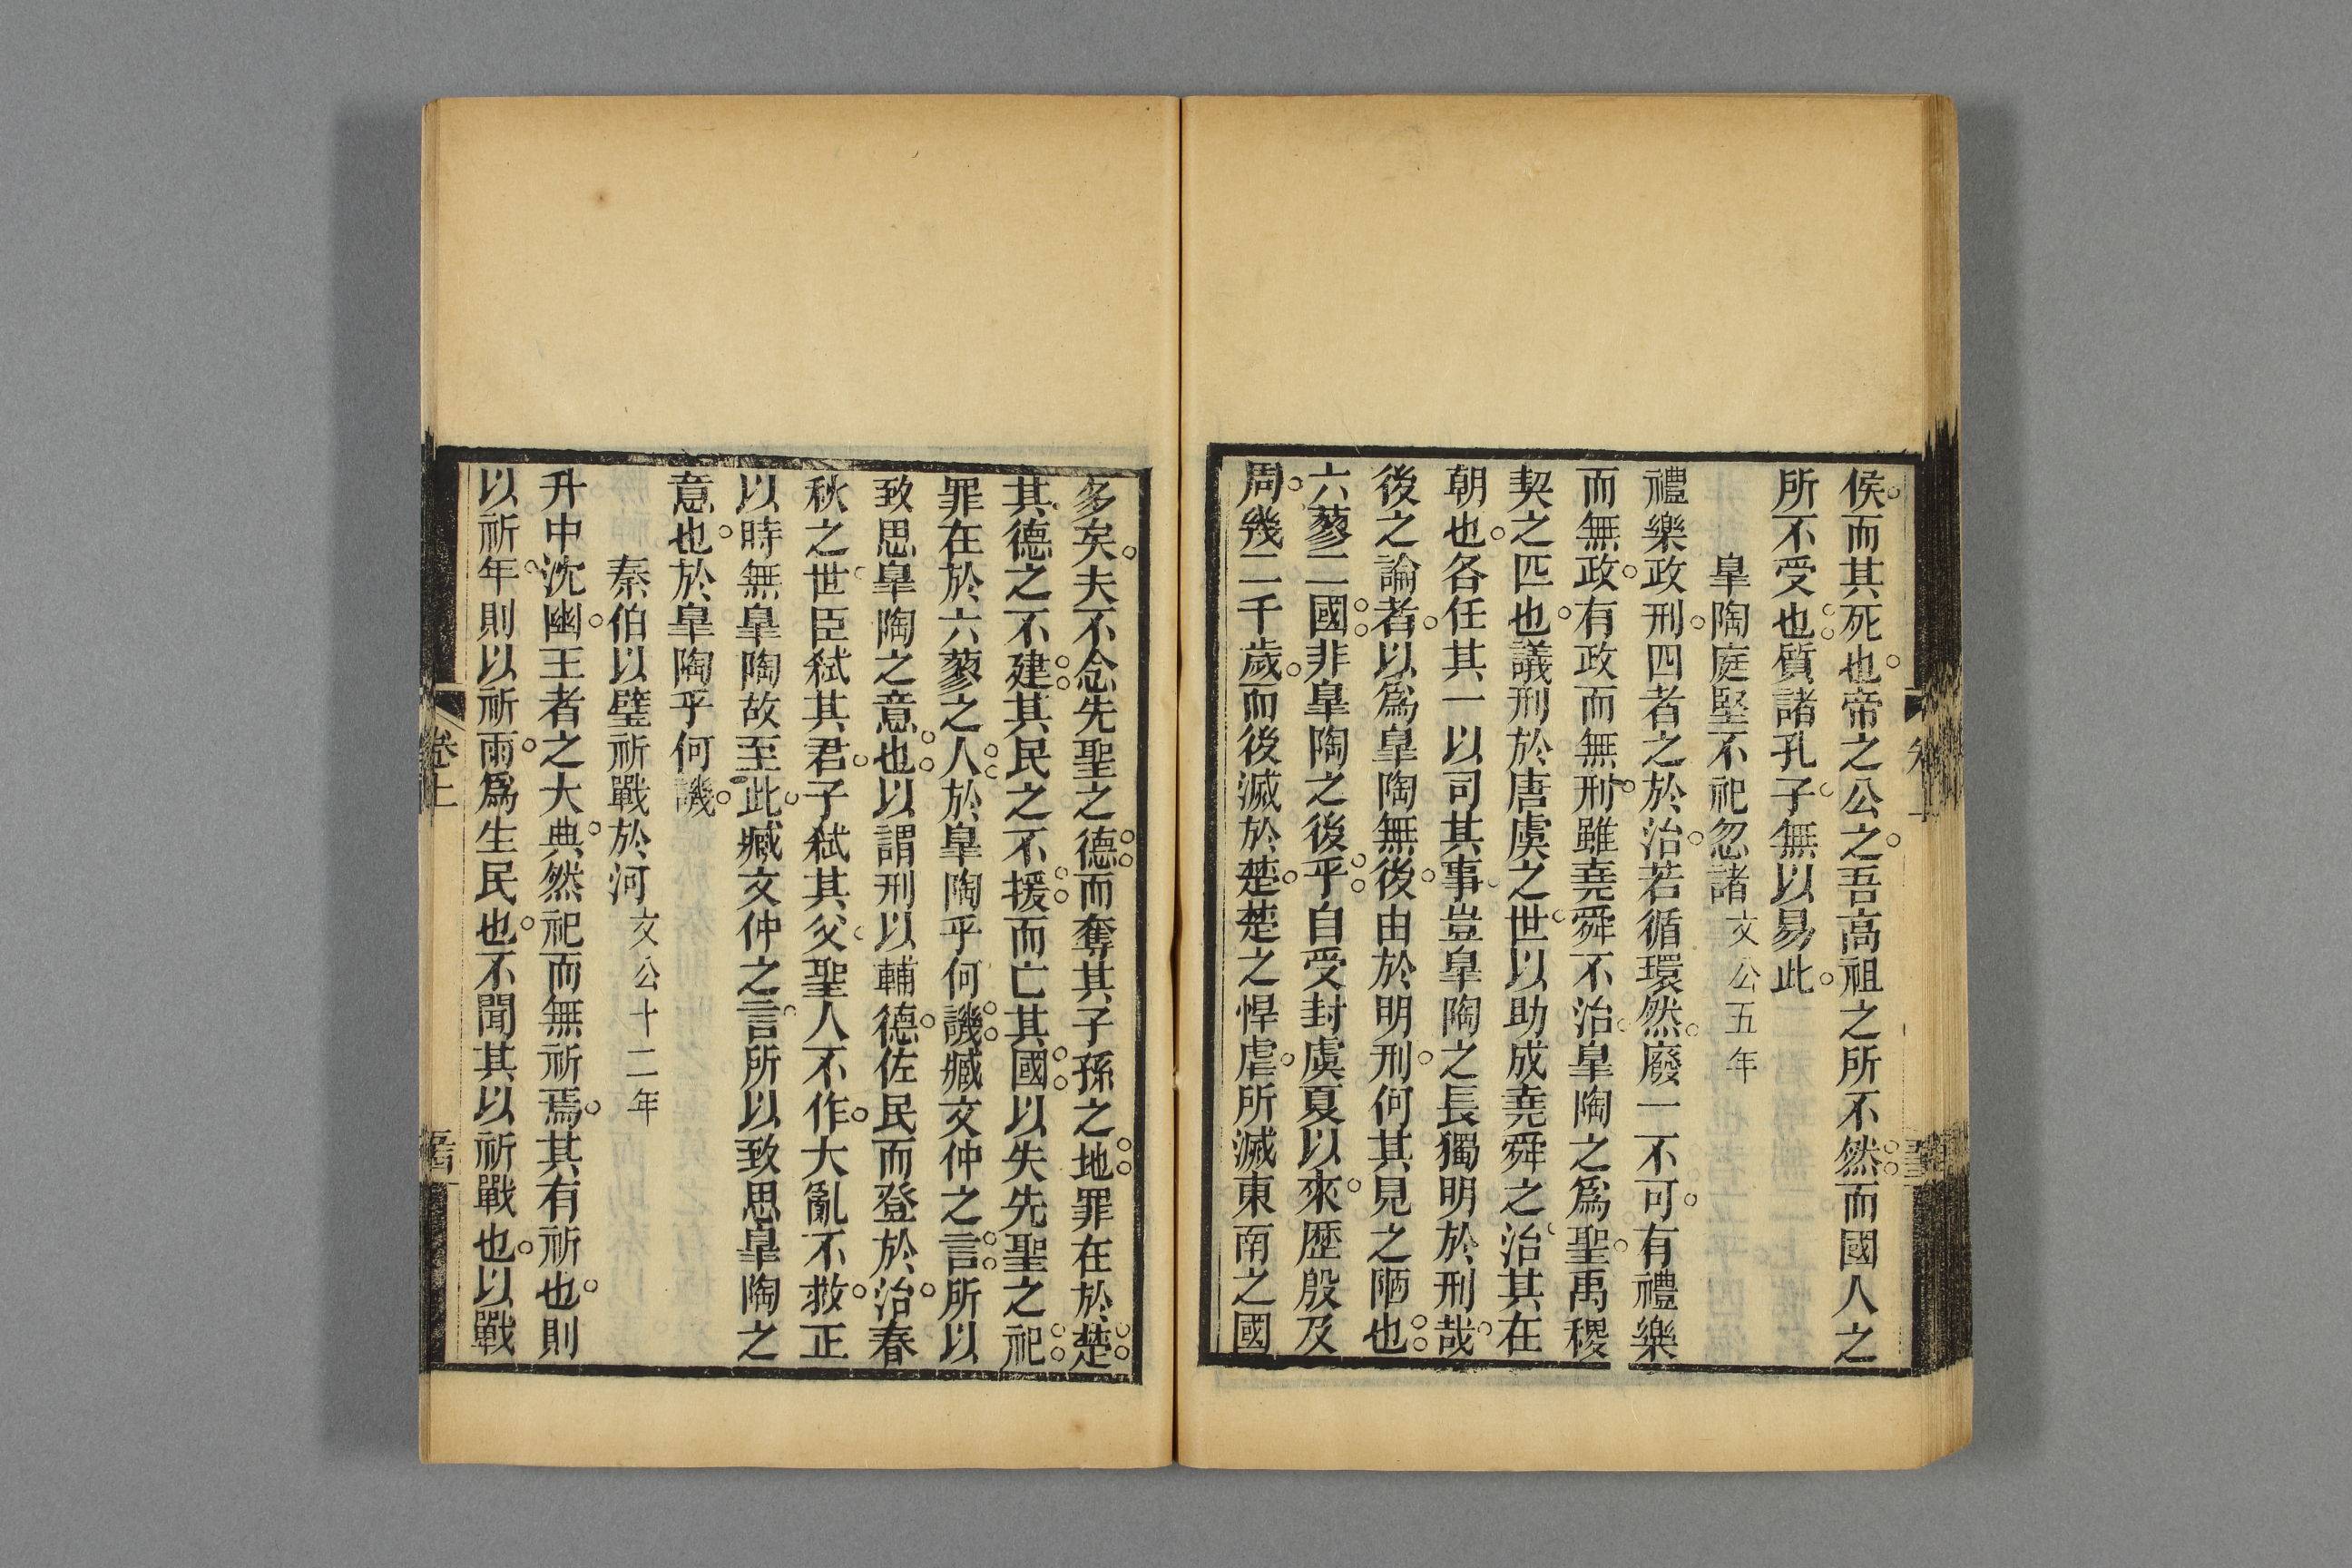 侯而其死也帝之公之吾高祖之所不然而國人之
所不受也質諸孔子無以易此
皐陶庭堅不祀忽諸文公五年
禮樂政刑四者之於治若循環然廢一不可有禮樂
而無政有政而無刑雖堯舜不治皐陶之爲聖禹稷
契之匹也議刑於唐虞之世以助成堯舜之治其在
朝也各任其一以司其事豈皐陶之長獨明於刑哉
後之論者以爲皐陶無後由於明刑何其見之陋也
六蓼二國非皐陶之後乎自受封虞夏以來歷殷及
周幾二千歲而後滅於楚楚之悍虐所滅東南之國
多矣夫不念先聖之德而奪其子孫之地罪在於楚
其德之不建其民之不援而亡其國以失先聖之祀
罪在於六蓼之人於皐陶乎何譏臧文仲之言所以
致思皐陶之意也以謂刑以輔德佐民而登於治春
秋之世臣弑其君子弑其父聖人不作大亂不救正
以時無皐陶故至此臧文仲之言所以致思皐陶之
意也於皐陶乎何譏
秦伯以璧祈戰於河文公十二年
升中沈幽王者之大典然祀而無祈焉其有祈也則
以祈年則以祈雨爲生民也不聞其以祈戰也以戰
卷上